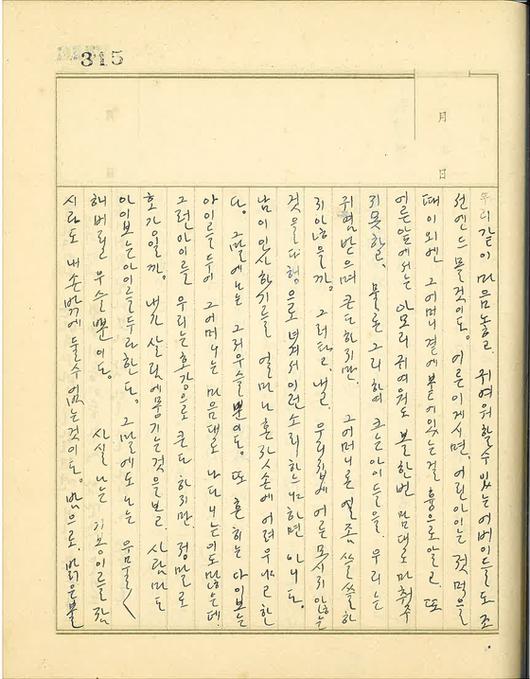 315
月
日
우리같이 마음놓고 귀여워할수있는어버이들도 조
선엔드물것이다. 어른이게시면, 어린아이는 젖먹을
때이외엔 그어머니곁에붙어있는걸 흉으로알고, 또
어른앞에서는 아모리 귀여워도 볼한번 맘대로 마춰주
지못하고, 물론 그리하여 크는아이들을, 우리는
귀염받으며 큰다하지만, 그어머니은 얼좀 쓸쓸하
지않을까. 그러타고, 내고 우리집에 어른모시지않는
것을다행으로녁여서 이런소리하는냐하면 아니다.
남이인사하기를 얼마나혼자손에어려우냐고한
다. 그말에나는 그저우슬뿐이다. 또 흔히는 아이보는
아이를두어 그어머니는 마음대로 나다니는이도많은데,
그런아이를 우리는호강으로 큰다하지만, 정말로
호강일까. 내가 살림에뭉기는것을보고 사람마다
아이보는아이를두라한다. 그말에도나는 유물을
해버릴 우슬뿐이다. 사실 나는 기봉이를 잠
시라도 내손밖에 둘수없는것이다. 밤으로, 밝은불